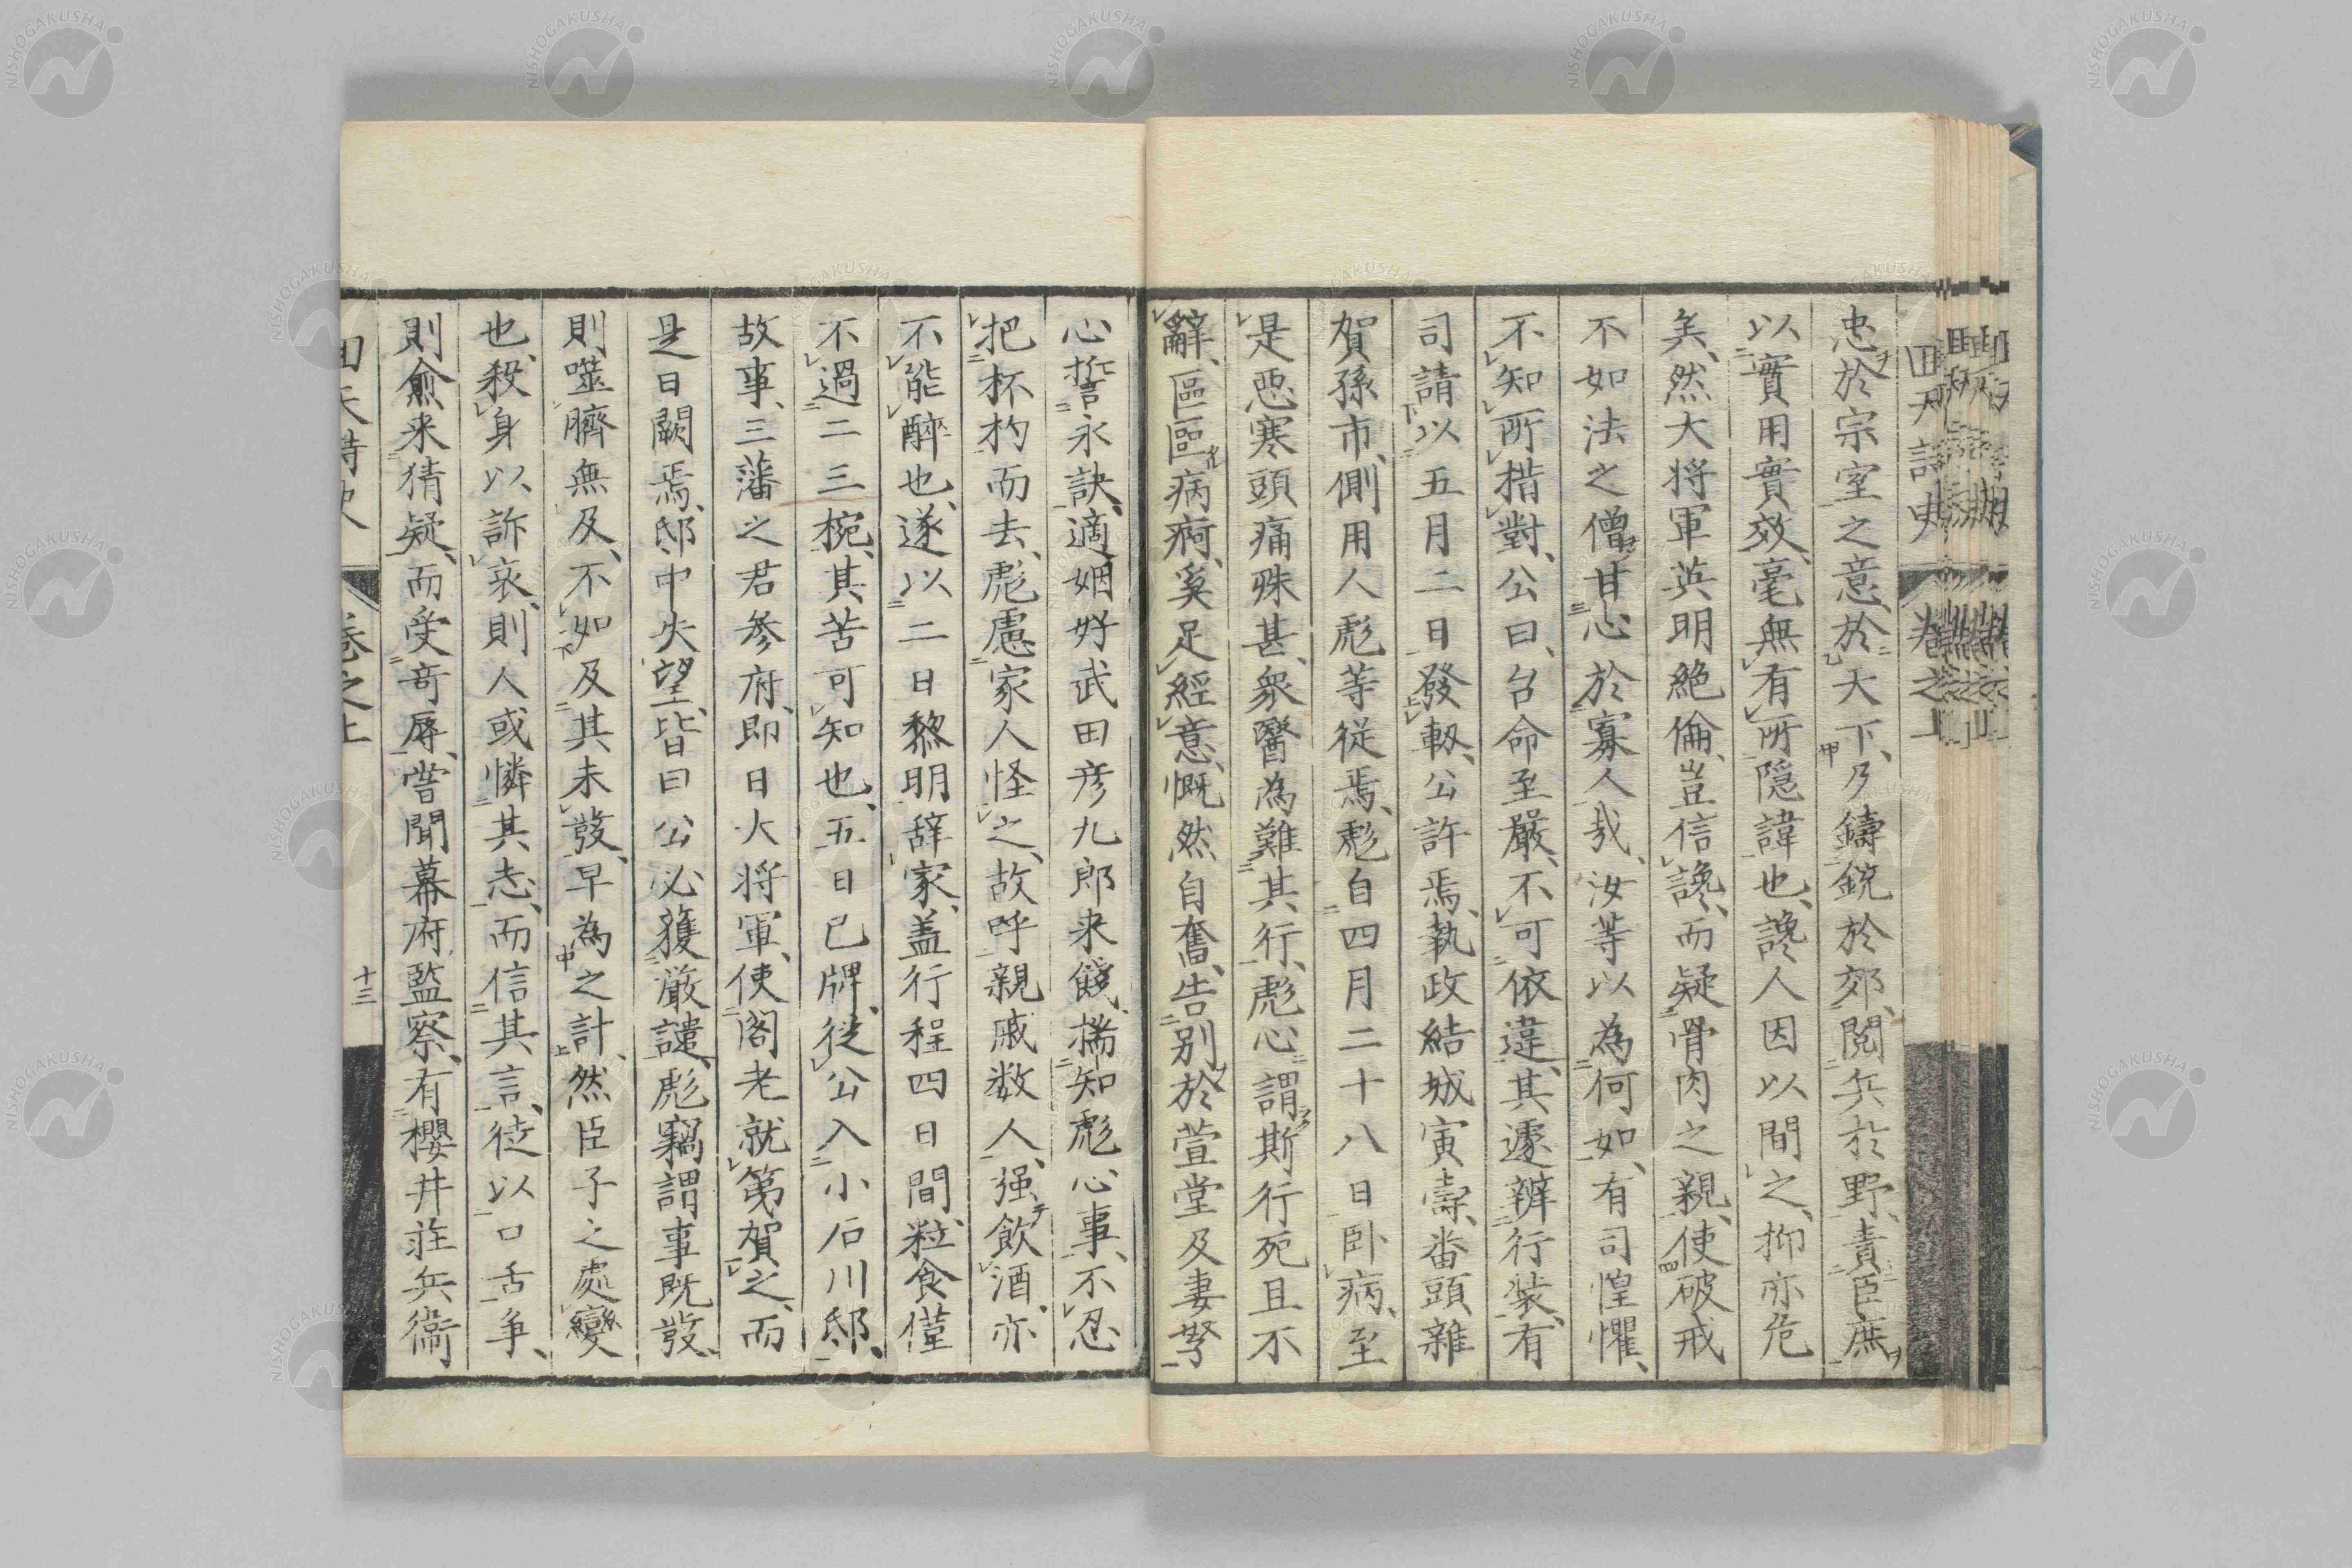 回天詩史 卷之上
忠於宗室之意、於天下、乃鑄銃於郊、閲兵於野、責臣庶
以實用實效、毫無有所隠諱也、讒人因以間之、抑亦危
矣、然大将軍英明絶倫、豈信讒、而疑骨肉之親、使破戒
不如法之僧甘心於寡人哉、汝等以為何如、有司惶懼、
不知所措對、公曰、台命至嚴、不可依違、其遽辨行装、有
司請以五月二日發軔、公許焉、執政結城寅壽、番頭雜
賀孫市、側用人彪等従焉、彪自四月二十八日卧病、至
是悪寒頭痛殊甚、衆醫為難其行、彪心謂斯行死且不
辭、區區病痾、奚足經意、慨然自奮、告別於萱堂及妻孥
心誓永訣、適姻好武田彦九郎来餞、揣知彪心事、不忍
把杯杓而去、彪慮家人怪之、故呼親戚数人、强飲酒、亦
不能醉也、遂以二日黎明辞家、盖行程四日間、粒食僅
不過二三椀、其苦可知也、五日巳牌、従公入小石川邸、
故事、三藩之君参府、即日大将軍、使閣老就第賀之、而
是日闕焉、邸中失望、皆曰公必獲厳譴、彪竊謂事既發、
則噬臍無及、不如及其未發、早為之計、然臣子之處變
也、殺身以訴哀、則人或憐其志、而信其言、徒以口舌争、
則愈来猜疑、而受奇辱、嘗聞幕府監察、有櫻井莊兵衞
回天詩史 卷之上 十三